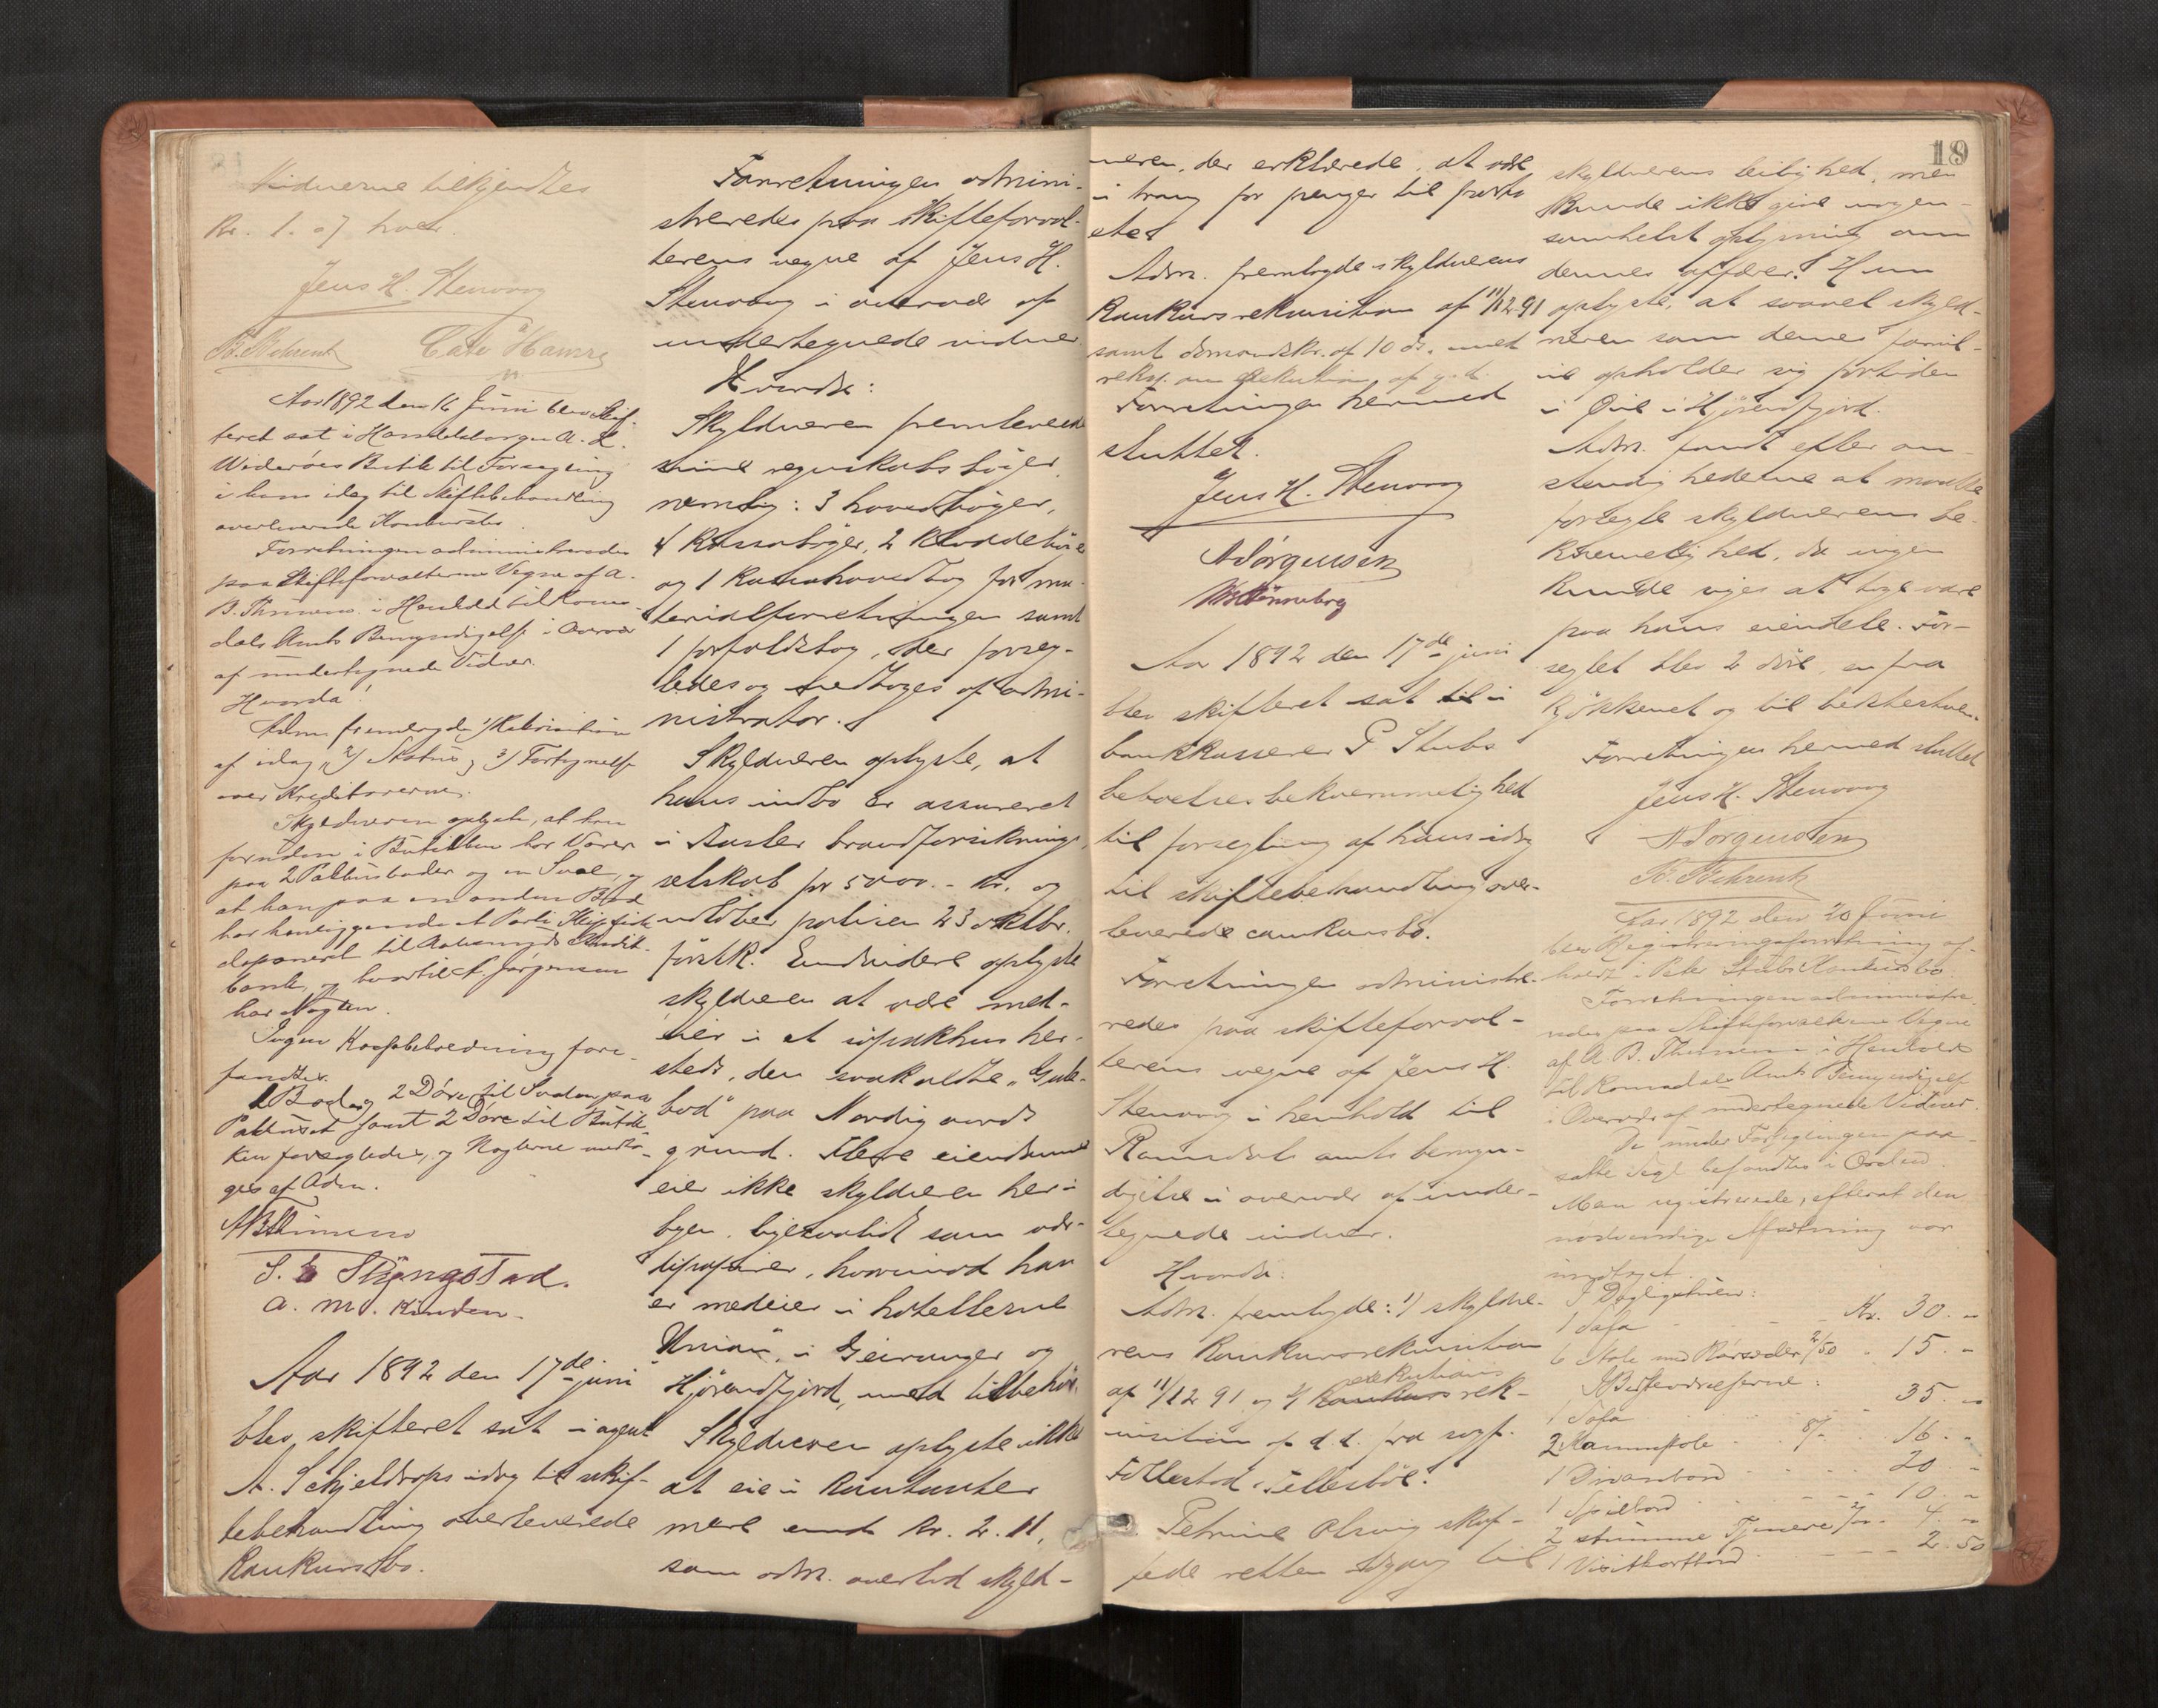 Vidnerne tilkjendtes
Kr. 1. af hver.
Jens H. Stenvaag
B. Behrentz Cato Hamre
Aar 1892 den 16 Juni blev Skif-
teret sat i Handelsborger A. L.
Widerøes Butik til Forsegling
i hans idag til Skiftebehandling
overleverede Konkursbo.
Forretningen administreredes
paa Skifteforvalterens Vegne af A.
B. Thimens i Henhold til Roms-
dals Amts Bemyndigelse i Overvær
af undertegnede Vidner.
Hvorda!
Adm. fremlagde 1/ Rekvisition
af idag, 2/ Status, 3/ Fortegnelse
over Kreditorerne.
Skyldneren oplyste, at han
foruden i Butikken har Varer
paa 2 Pakhusboder og en Sval, og
at han paa en anden Bod
har henliggende et Parti Klipfisk
deponeret til Aalesunds Kredit-
bank, og hvortil A. Jørgensen
har Nøglen.
Ingen Kassebeholdning fore-
fandtes.
2 Boder, 2 Døre til Svalen paa
Pakhuset samt 2 Døre til Butik-
ken forsegledes, og Nøglerne medto-
ges af Adm.
AB Thimens
S. E Slyngstad.
a. M. Kinden.
Aar 1892 den 17de juni
blev skifteret sat i agent
A. Schjeldrops idag til skif-
tebehandling overleverede
Konkursbo.
Forretningen admini-
streredes paa skifteforval-
terens vegne af Jens H.
Stenvaag i overvær af
undertegnede vidner.
Hvorda:
Skyldneren fremlevered
sine regnskabsbøger
nemlig: 3 hovedbøger,
4 Kassabøger, 2 Kladdebøger
og 1 Kassahovedbog for ma-
terialforretningen samt
1 forfaldsbog, der forseg-
ledes og medtoges af admi-
nistrator.
Skyldneren oplyste, at
hans indbo er assureret
i Aasler brandforsikrings-
selskab for 5000.- kr. og
udløber polisen 23 oktbr.
førstk. Endvidere oplyste
skyldneren at være med-
eier i et sjøpakhus her-
steds, den saakaldte "Gule-
bod" paa Nordigaards
grund. Flere eiendomme
eier ikke skyldneren her i
byen, ligesaalidt som vær-
dipapirer, hvorimod han
er medeier i hotellerne
"Union" i Geiranger og
Hjørendfjord, med tilbehør.
Skyldneren oplyste ikke
at eie i Kontanter
mere end kr. 2.11,
som adm. overlod skyld-
neren, der erklærede, at være
i trang for penger til første
sted
Adm. fremlagde skyldnerens
Konkursrekvisition af 11/12 91
samt domsudskr. af 10 ds. med
reks. om exekution af g. d.
Forretningen hermed
sluttet.
Jens H. Stenvaag
A Jørgensen
Aar 1892 den 17de juni
blev skifteret sat til i
bankkasserer P. Stubs
beboelsesbekvemmelighed
til forsegling af hans idag
til skiftebehandling over-
leverede conkursbo.
Forretningen administre-
redes paa skifteforval-
terens vegne af Jens H.
Stenvaag i henhold til
Romsdals amts bemyn-
digelse i overvær af under-
tegnede vidner.
Hvorda:
Adm. fremlagde: 1/ skyldne-
rens Konkursrekvisition
af 11/12 91 og 2/ konkurs exekutions rek-
visition af d. d. fra sagf.
Follestad i Tellesbøe.
Petrine Alsvig skaf-
fede retten adgang til
18
skyldnerens leilighed, men
kunde ikke give nogen-
somhelst oplysning om
dennes affærer. Hun
oplyste, at saavel skyld-
neren som dennes famil-
ie opholder sig fortiden
i Øie i Hjørendfjord.
Adm. fandt efter om-
stændighederne at maatte
forsegle skyldnerens be-
kvemmelighed, da ingen
kunde siges at tage vare
paa hans eiendele. For-
seglet blev 2 døre, en fra
kjøkkenet og til bedstestuen.
Forretningen hermed sluttet
Jens H. Stenvaag
A Jørgensen
B. Behrentz
Aar 1892 den 20 Juni
blev Registreringsforretning af-
holdt i Peter Stubs Konkursbo.
Forretningen administre-
redes paa Skifteforvalterens Vegne
af A. B. Thimens i Henhold
til Romsdals Amts Bemyndigelse
i Overvær af undertegnede Vidner.
De under Forseglingen paa-
satte Segl befandtes i Orden.
Man registrerede, efterat den
nødvendige Afsætning var
indtaget.
I Dagligstuen:
1 Sofa Kr. 30. "
6 Stole med Rørsæder 2/50 " 15. "
I Bestværelserne:
1 Sofa 35. "
2 Lænestole 8/- 16. "
1 Divanbord 20 "
1 Spilbord 10. "
2 stumme Tjenere 2/- 4. "
1 Visitkortbord 2. 50